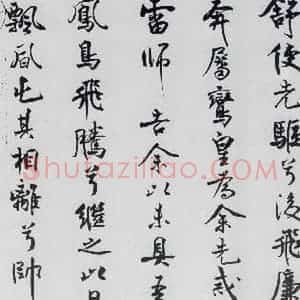 舒使先驅兮後飛廉
奔屬鸞皇為余先戒
雷師告余以未具吾
鳳鳥飛騰兮繼之以日
飄風屯其相離兮帥
Shufaziliao.com